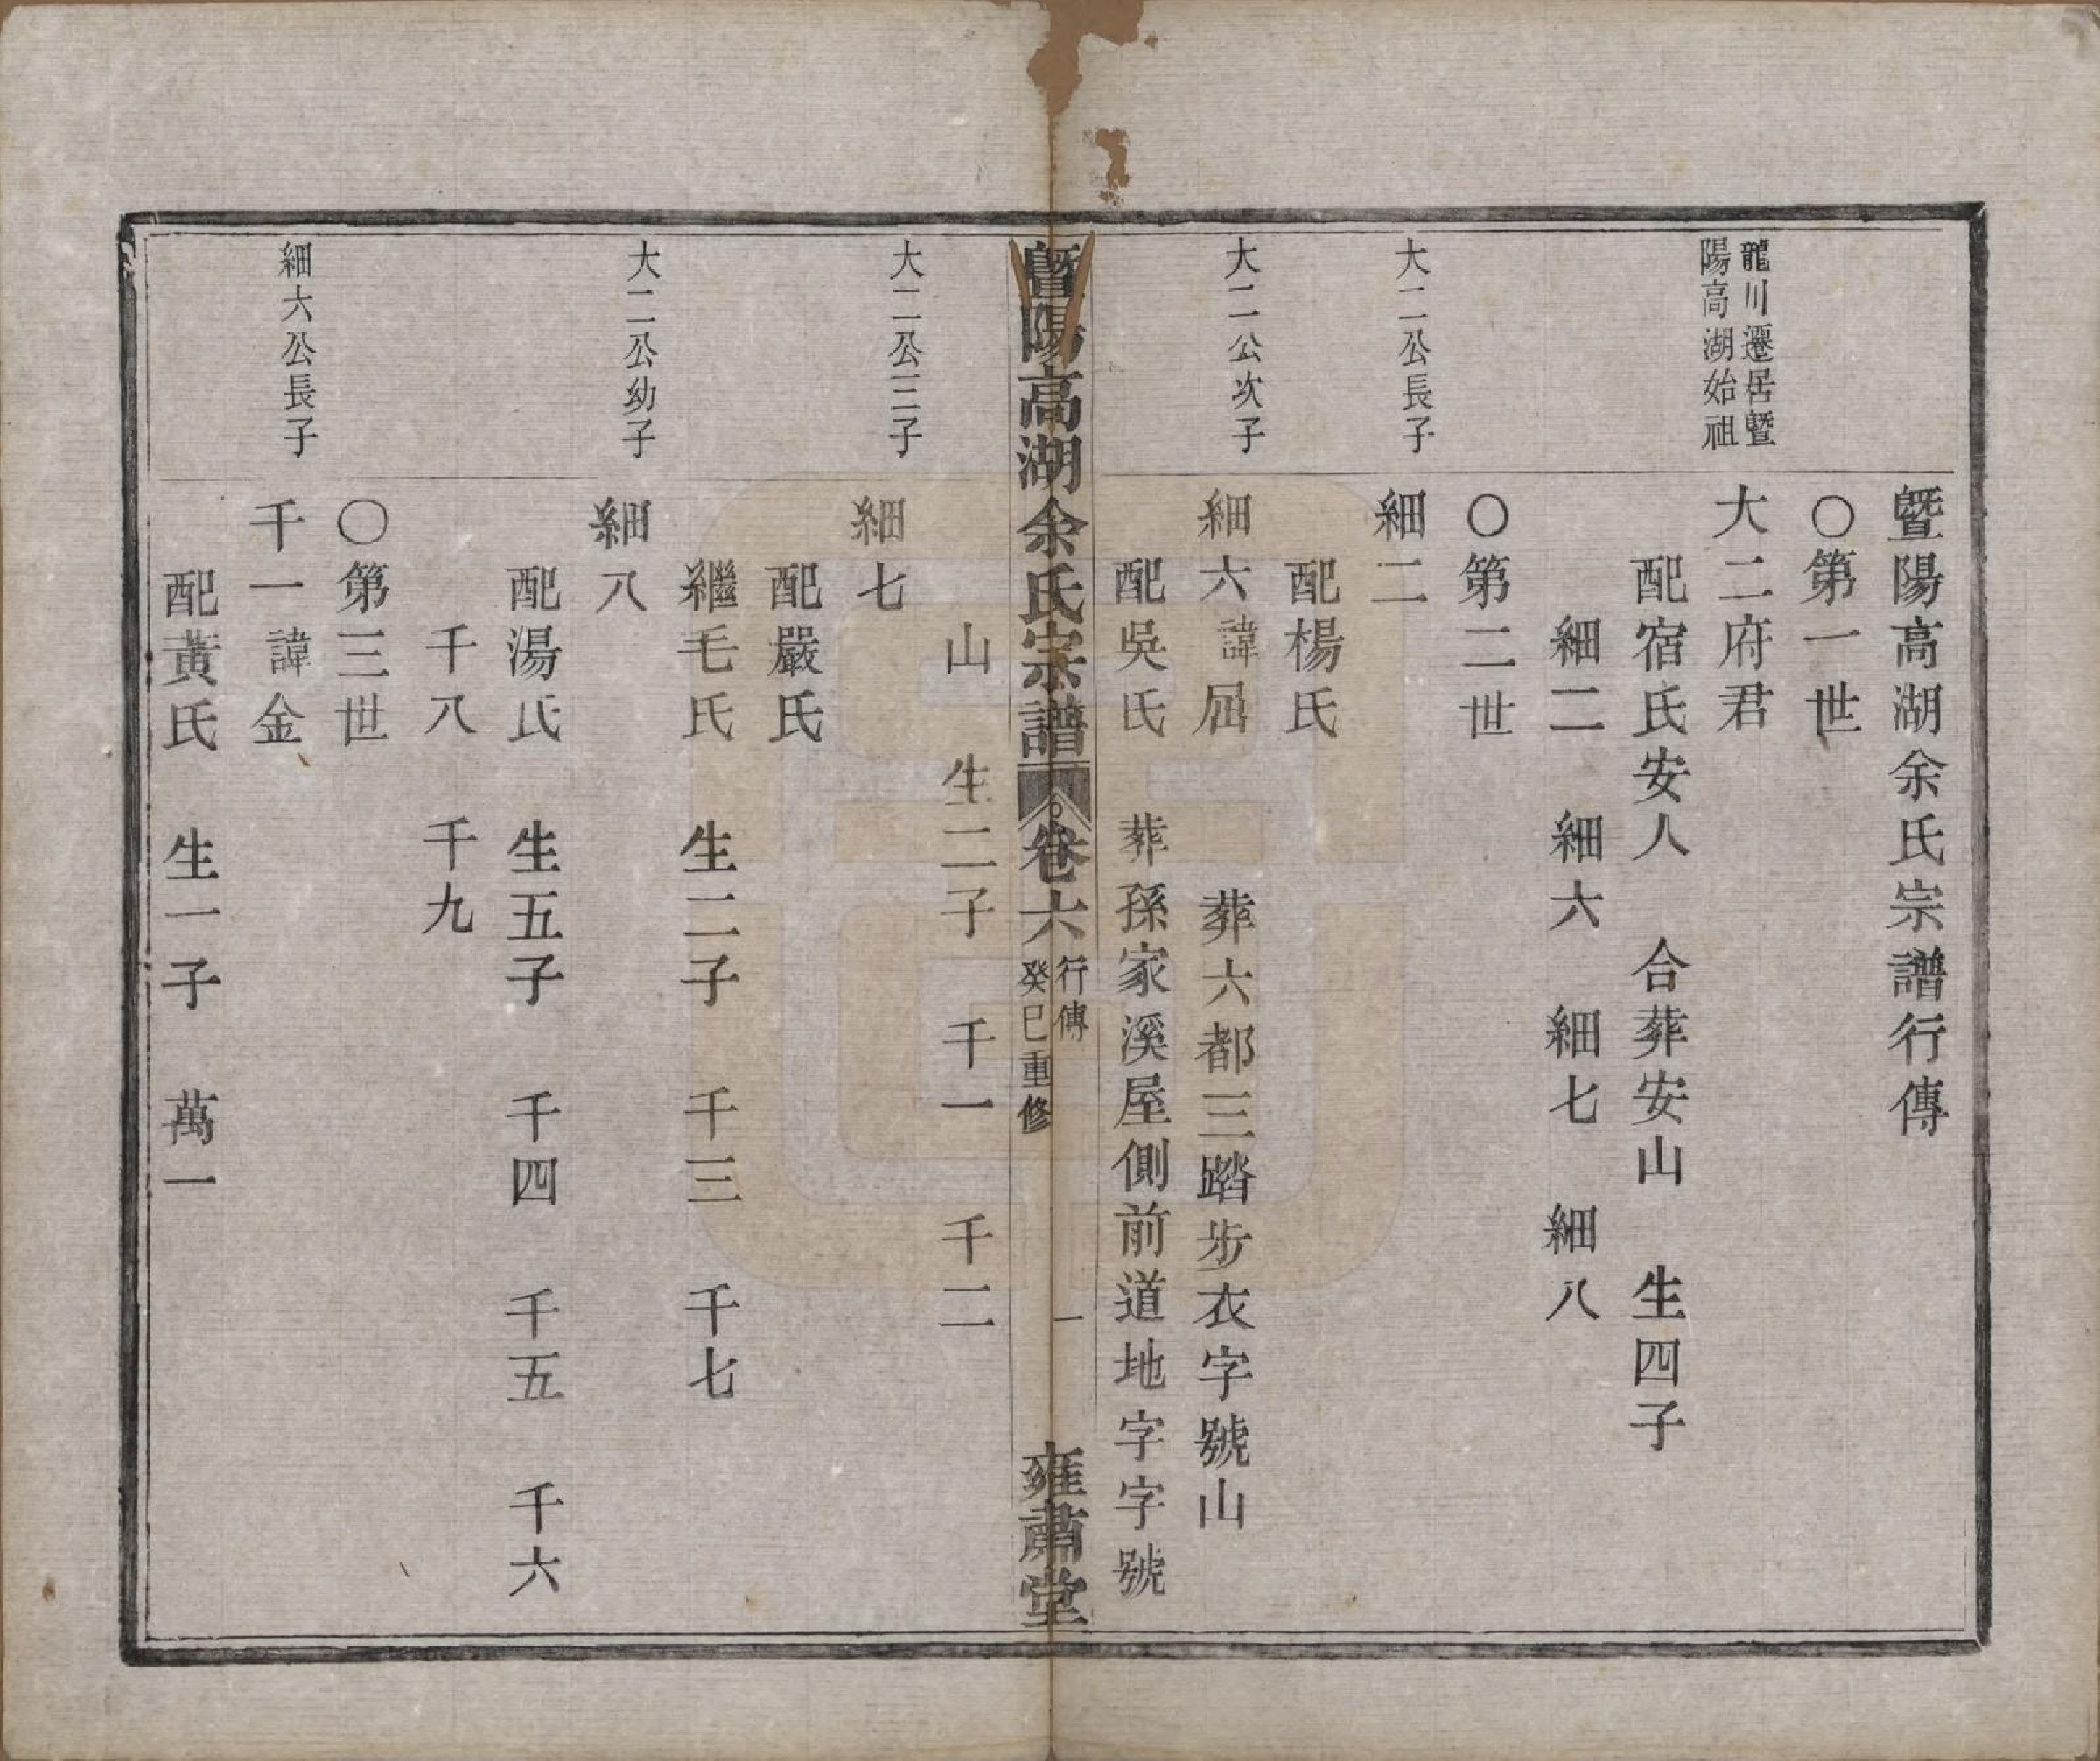 暨陽高湖余氏宗譜行傳
○第一世
龍川遷居暨
陽高湖始祖
大二府君
配宿氏安人 合葬安山 生四子
細二 細六 細七 細八
○第二世
大二公長子
細二
配楊氏
大二公次子
細六 諱屈 葬六都三踏步衣字號山
配吳氏 葬孫家溪屋側前道地字字號
暨陽高湖余氏宗譜 卷六 行傳 癸巳重修 一 雍肅堂
山 生二子 千一 千二
大二公三子
細七
配嚴氏
繼毛氏 生二子 千三 千七
大二公幼子
細八
配湯氏 生五子 千四 千五 千六
千八 千九
○第三世
細六公長子
千一 諱金
配黃氏 生一子 萬一